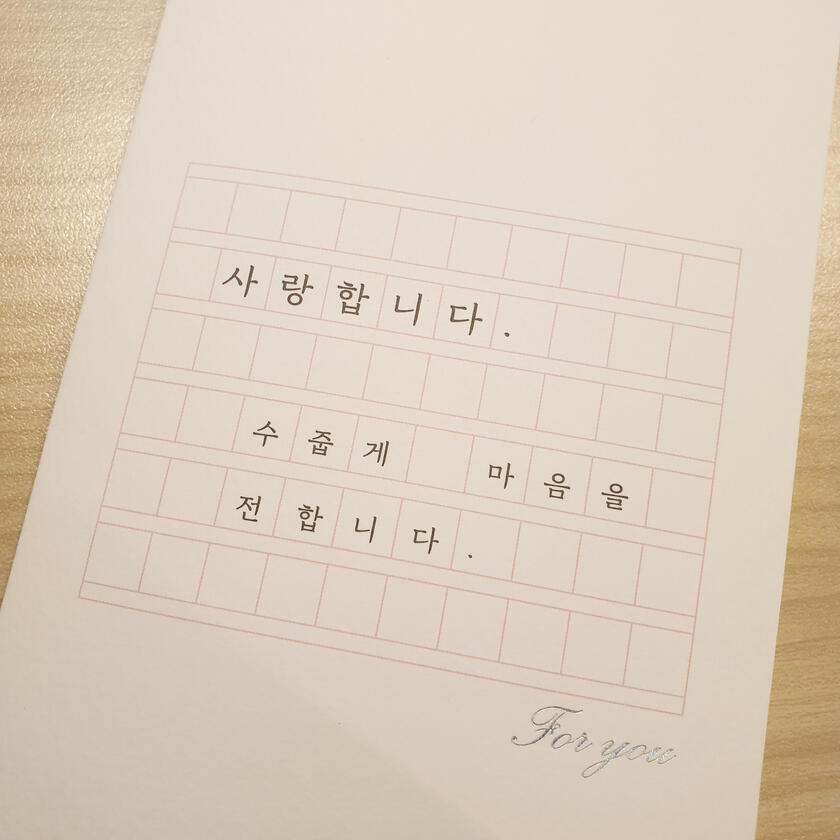 사랑합니다.
수줍게 마음을
전합니다.
For you